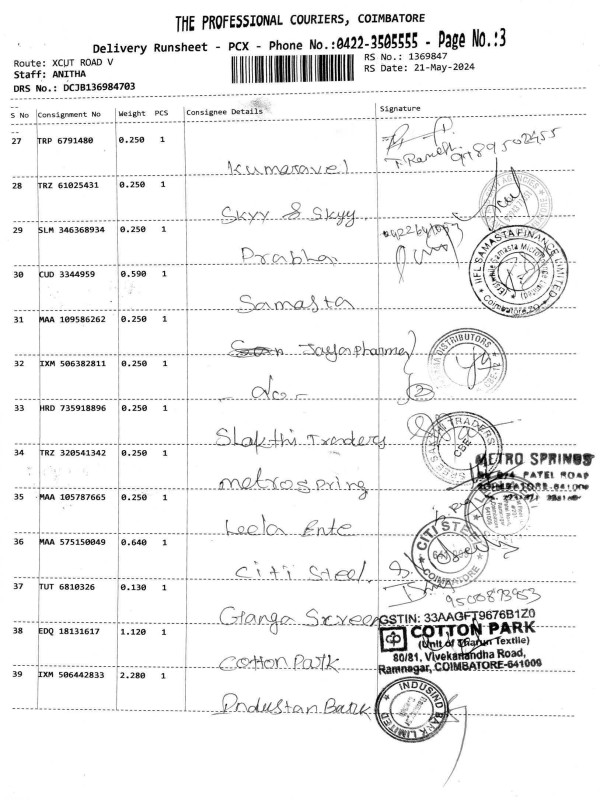 THE PROFESSIONAL COURIERS, COIMBATORE
Delivery Runsheet - PCX - Phone No.:0422-3505555 - Page No.:3
Route: XCUT ROAD V
RS No.: 1369847
Staff: ANITHA
RS Date: 21-May-2024
DRS No.: DCJB136984703
S No Consignment No Weight PCS Consignee Details Signature
27 TRP 6791480 0.250 1
T. Ramesh 9789502455
Kumaravel
28 TRZ 61025431 0.250 1
Skyy & Skyy
29 SLM 346368934 0.250 1
Prabha
30 CUD 3344959 0.590 1
IIFL SAMASTA FINANCE LIMITED
Coimbatore
Samasta
31 MAA 109586262 0.250 1
Jayapharma
32 IXM 506382811 0.250 1
DISTRIBUTORS
- do - 2
33 HRD 735918896 0.250 1
TRADERS
CBE
Shakthi Traders
34 TRZ 320541342 0.250 1
METRO SPRINGS
PATEL ROAD
COIMBATORE-641009
metrospring
35 MAA 105787665 0.250 1
Leela Ente
36 MAA 575150049 0.640 1
CITI STEEL
COIMBATORE
Citi Steel
37 TUT 6810326 0.130 1
9500873953
Ganga Screen
GSTIN: 33AAGFT9676B1Z0
38 EDQ 18131617 1.120 1
COTTON PARK
(Unit of Tharun Textile)
80/81, Vivekanandha Road,
Ramnagar, COIMBATORE-641009
Cotton Park
39 IXM 506442833 2.280 1
INDUSIND BANK LIMITED
Industan Bank